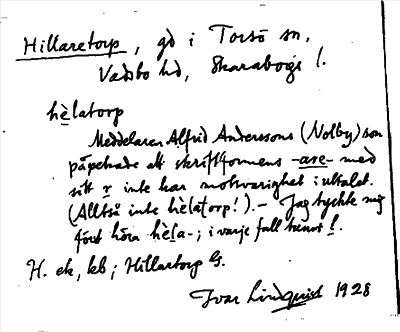 Hillaretorp, gd i Torsö sn,
Vadsbo hd, Skarabogs l.
hèlatorp
Meddelaren Alfrid Anderssons (Nolby) son
påpekade att skriftformens -are- med
sitt r inte har motsvarighet i uttalet.
(Alltså inte hèlatorp!). – Jag tyckte mig
först höra hèla-; i varje fall tunnt l.
H. ek, kb; Hillartorp G.
Ivar Lindquist 1928